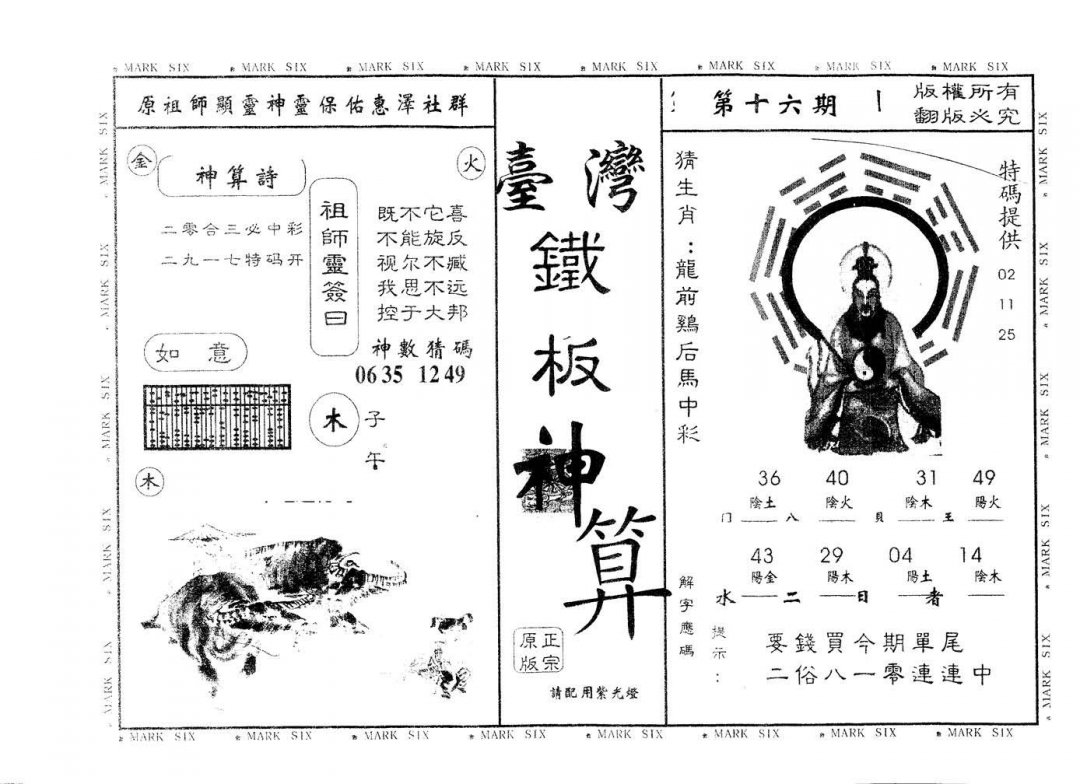 MARK SIX MARK SIX MARK SIX MARK SIX MARK SIX MARK SIX MARK SIX MARK SIX
原祖師顯靈神靈保佑惠澤社群
金
神算詩
火
二零合三必中彩
二九一七特码开
祖師靈簽曰
既不它喜
不能旋反
视尔不臧
我思不远
控于大邦
神數猜碼
06 35 12 49
如意
木
子
午
木
臺灣
鐵
板
神
算
正宗
原版
請配用紫光燈
第十六期
版權所有
翻版必究
猜生肖：龍前鷄后馬中彩
特碼提供
02
11
25
36 40 31 49
陰土 陰火 陰木 陽火
门 八 貝 王
43 29 04 14
陽金 陽木 陽土 陰木
水 二 日 者
解字應碼
提示：
要錢買今期單尾
二俗八一零連連中
MARK SIX MARK SIX MARK SIX MARK SIX MARK SIX MARK SIX MARK SIX MARK SIX
MARK SIX MARK SIX MARK SIX MARK SIX MARK SIX
MARK SIX MARK SIX MARK SIX MARK SIX MARK SIX